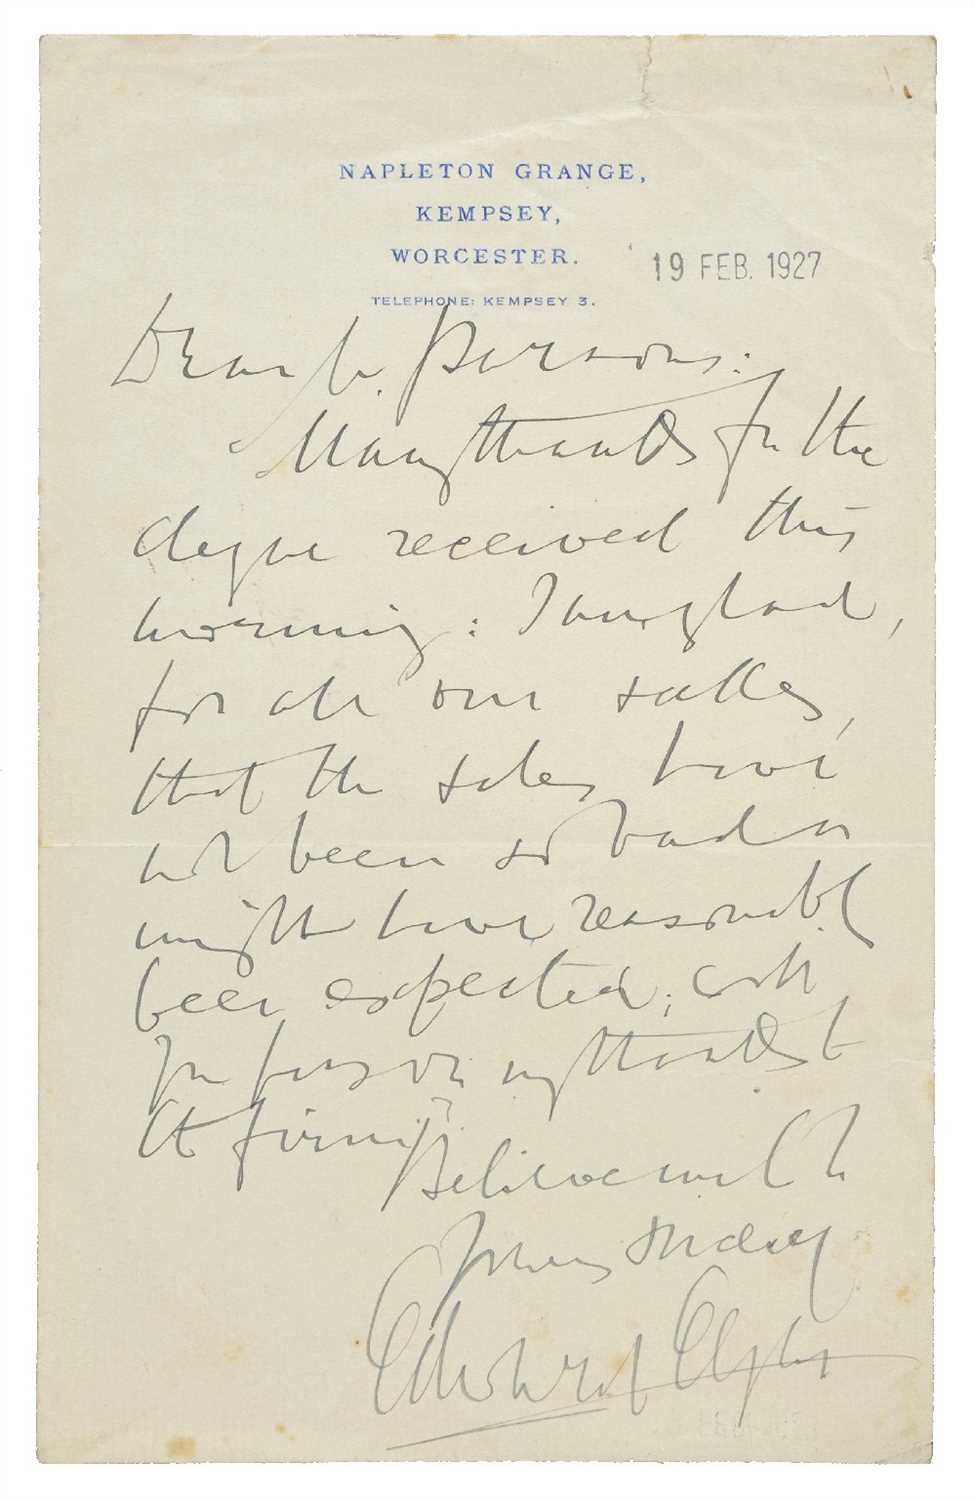 NAPLETON GRANGE,
KEMPSEY,
WORCESTER.
19 FEB. 1927
TELEPHONE: KEMPSEY 3.
Dear Mr. Parsons:
Many thanks for the
cheque received this
morning: I am glad,
for all our sakes,
that the sales have
not been so bad as
might have reasonably
been expected; will
you pass on my thanks to
the firm?
Believe me to be
Yours sincerely
Edward Elgar